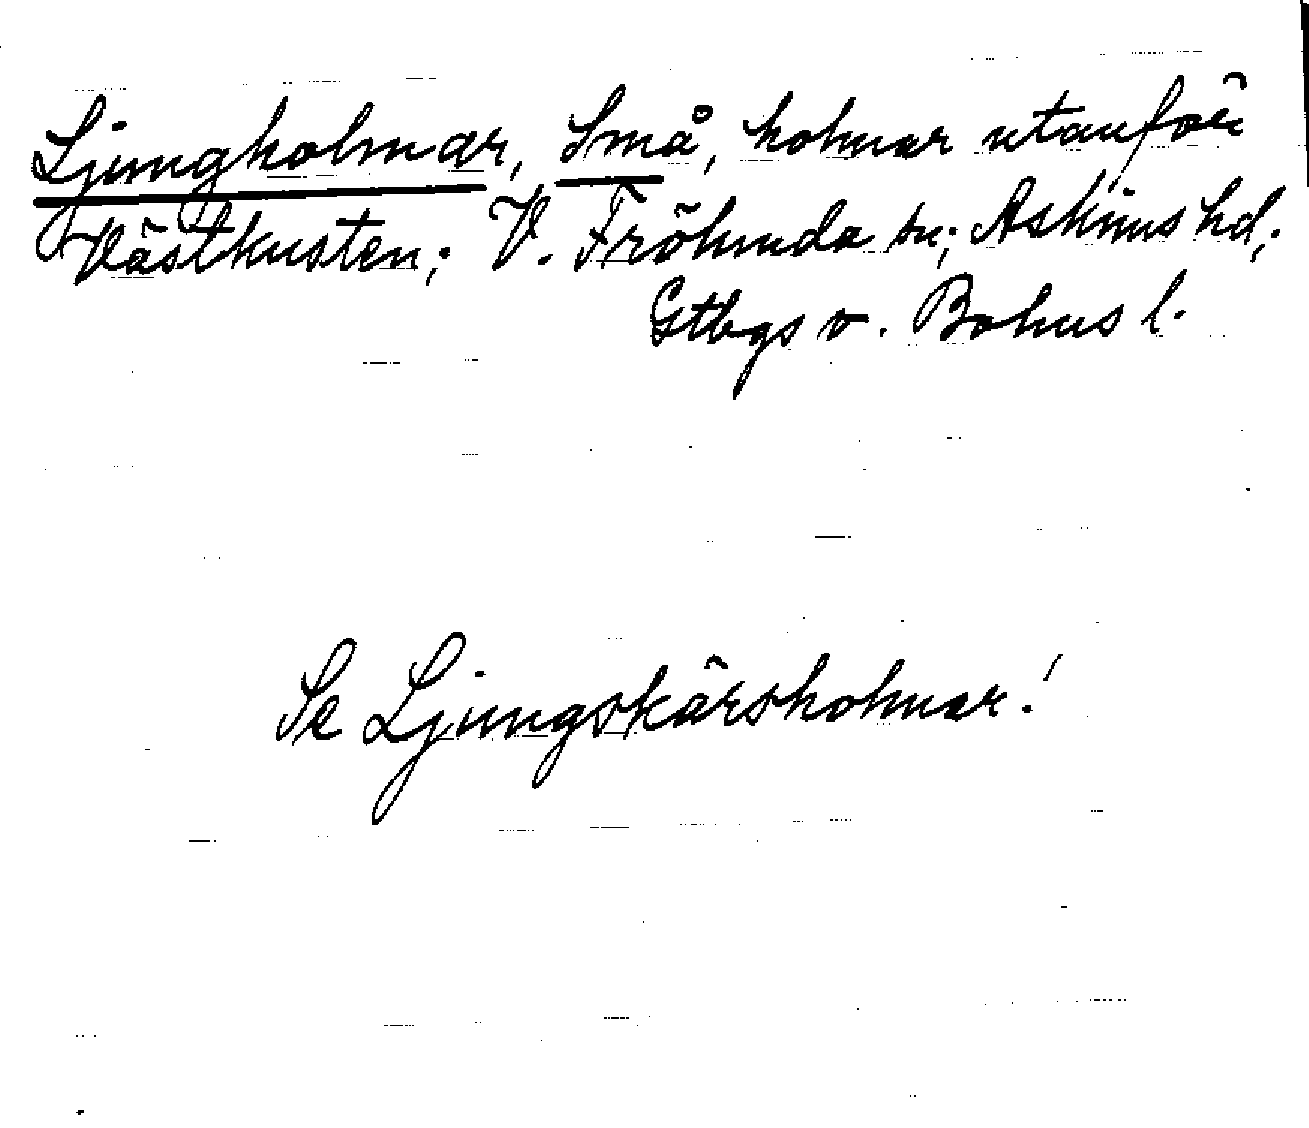 Ljungholmar, Små, holmar utanför
Västkusten; V. Frölunda sn; Askims hd;
Gtbgs o. Bohus l.
Se Ljungskärsholmar!